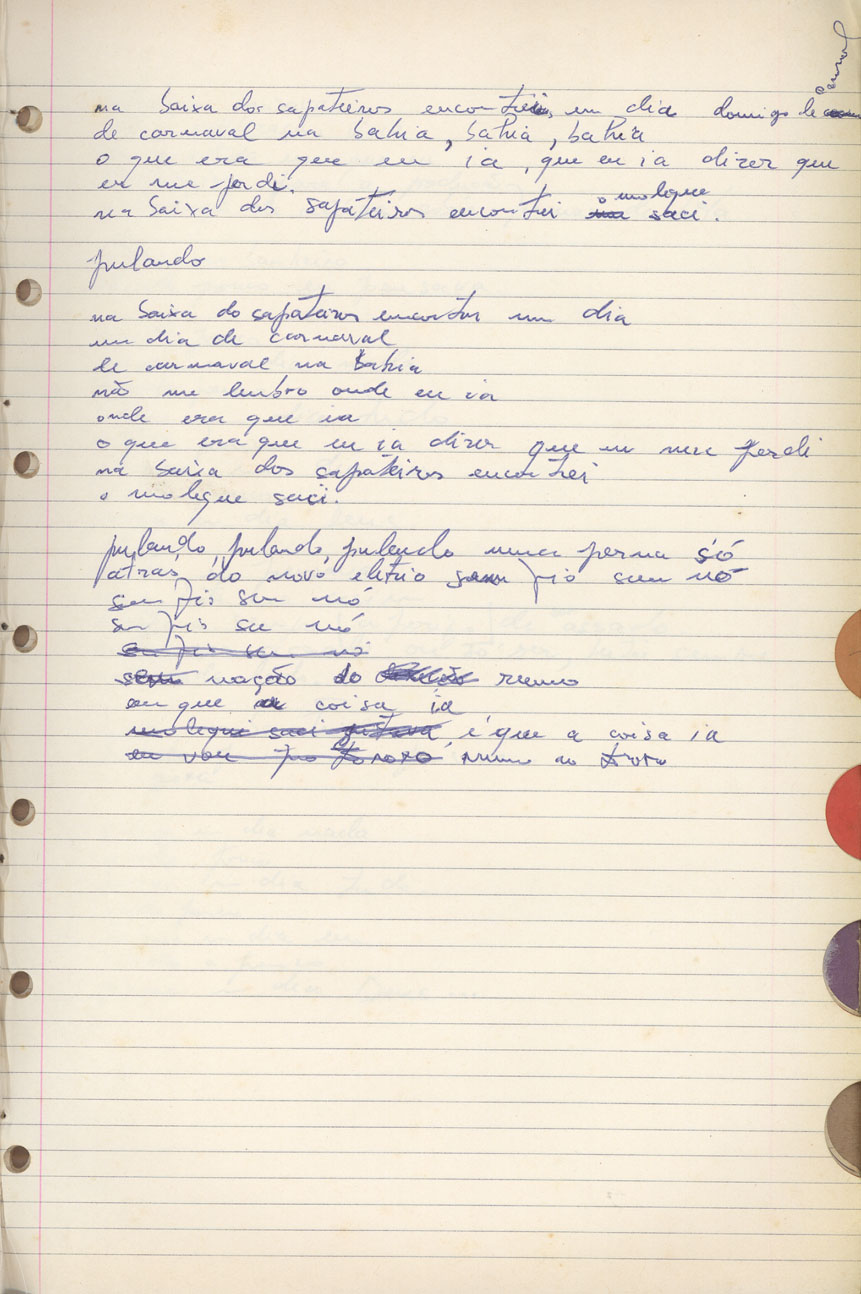 na baixa dos sapateiros encontrei, um dia domigo de
de carnaval na bahia, bahia, bahia
o que era que eu ia, que eu ia dizer que
eu me perdi.
na baixa dos sapateiros encontrei o moleque saci.
pulando
na baixa do sapateiros encontrei um dia
um dia de carnaval
de carnaval na Bahia
não me lembro onde eu ia
onde era que ia
o que era que eu ia dizer que eu me perdi
na baixa dos sapateiros encontrei
o moleque saci.
pulando, pulando, pulando numa perna só
atras do novo eletrio sem fio sem nó
sem fio sem nó
sem fio sem nó
sem fio sem nó
sem nação do rumo
em que a coisa ia
moleque saci gritava é que a coisa ia
eu vou pro rumo ao